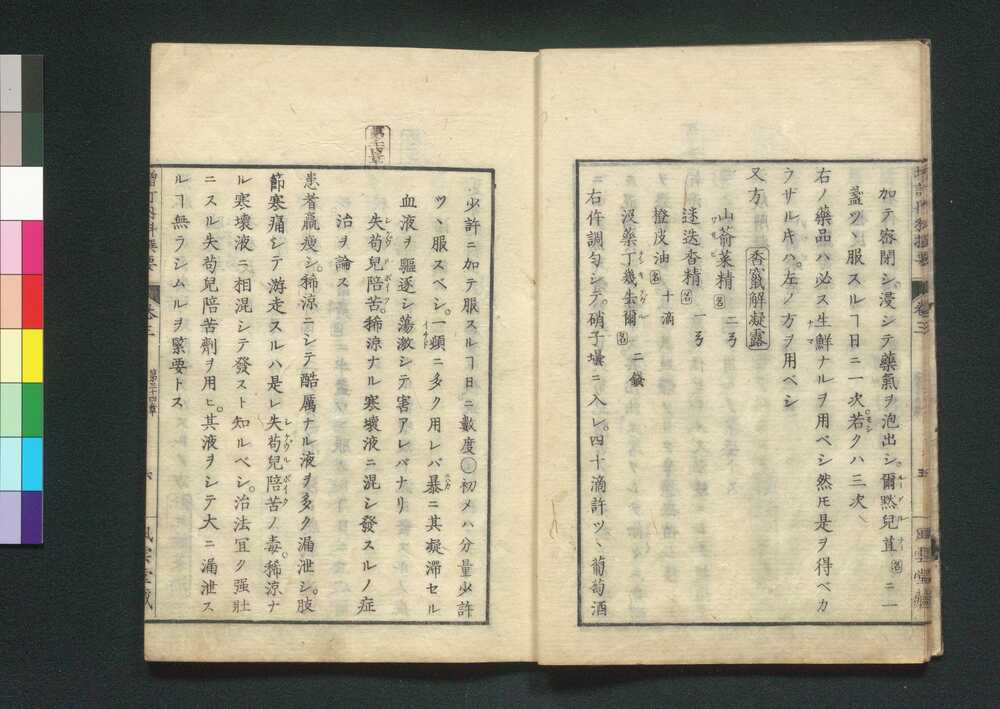 加テ密閉シ。浸シテ藥氣ヲ泡出シ。爾黙兒苴ニ一
盞ツヽ服スルヿ日ニ一次若クハ三次
右ノ藥品ハ必ス生鮮ナルヲ用ベシ然𪜈是ヲ得ベカ
ラザルキハ。左ノ方ヲ用ベシ
又方 香竄解凝露
山萮菜精 二ㄋ
迷迭香精 一ㄋ
橙皮油 十滴
沒藥丁幾去爾 二錢
右件調勻シテ。硝子壜ニ入レ。四十滴許ツヽ葡萄酒
少許ニ加テ服スルヿ日ニ數度○初メハ分量少許
ツヽ服スベシ。一頭ニ多ク用レバ暴ニ其凝滯セル
血液ヲ驅逐シ蕩激シテ害アレバナリ
第三十四章
失苟兒陪苦。稀涼ナル寒壞液ニ混シ發スルノ症
治ヲ論ス
患者羸瘦シ。稀涼ニシテ酷厲ナル液ヲ多ク漏泄シ。肢
節寒痛シテ游走スルハ是レ失苟兒陪苦ノ毒。稀涼ナ
ル寒壞液ニ相混シテ發スト知ルベシ。治法冝ク强壯
ニスル失苟兒陪苦劑ヲ用ヒ。其液ヲシテ大ニ漏泄ス
ルヿ無ラシムルヲ緊要トス
卷三
第三十四章